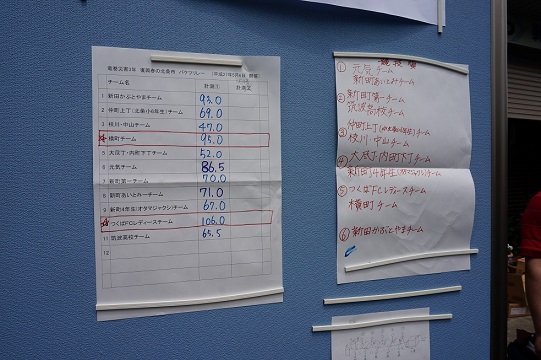 竜巻災害3年 復興春の北条市 バケツリレー (平成27年5月6日 開催)
チーム名 計測① 計測②
1 新田かぶとやまチーム 93.0
2 仲町上丁(北条小6年生)チーム 69.0
3 枝川・中山チーム 47.0
4 横町チーム 95.0
5 大辰丁・内町下丁チーム 52.0
6 元気チーム 86.5
7 新町第一チーム 70.0
8 新町あいとみーチーム 71.0
9 新町4年生(オタマジャクシ)チーム 67.0
10 つくばFCレディースチーム 106.0
11 筑波高校チーム 65.5
12
競技順
① 元気チーム
新町あいとみチーム
② 新町第一チーム
筑波高校チーム
③ 仲町上丁(北条小6年生)チーム
枝川・中山チーム
④ 大辰丁・内町下丁チーム
新町4年生(オタマジャクシ)チーム
⑤ つくばFCレディースチーム
横町チーム
⑥ 新田かぶとやまチーム